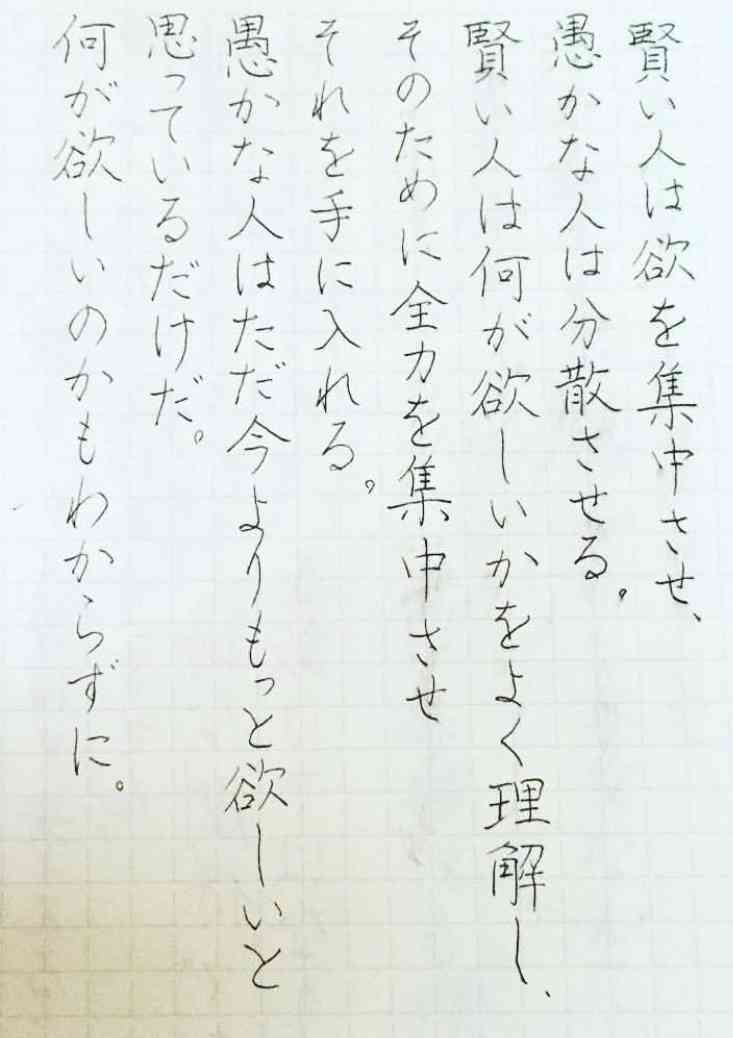 賢い人は欲を集中させ、
愚かな人は分散させる。
賢い人は何が欲しいかをよく理解し、
そのために全力を集中させ
それを手に入れる。
愚かな人はただ今よりもっと欲しいと
思っているだけだ。
何が欲しいのかもわからずに。